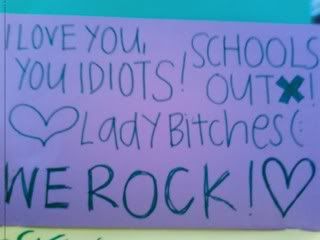 I LOVE YOU,
YOU IDIOTS!
SCHOOLS
OUT!
Lady Bitches (:
WE ROCK!